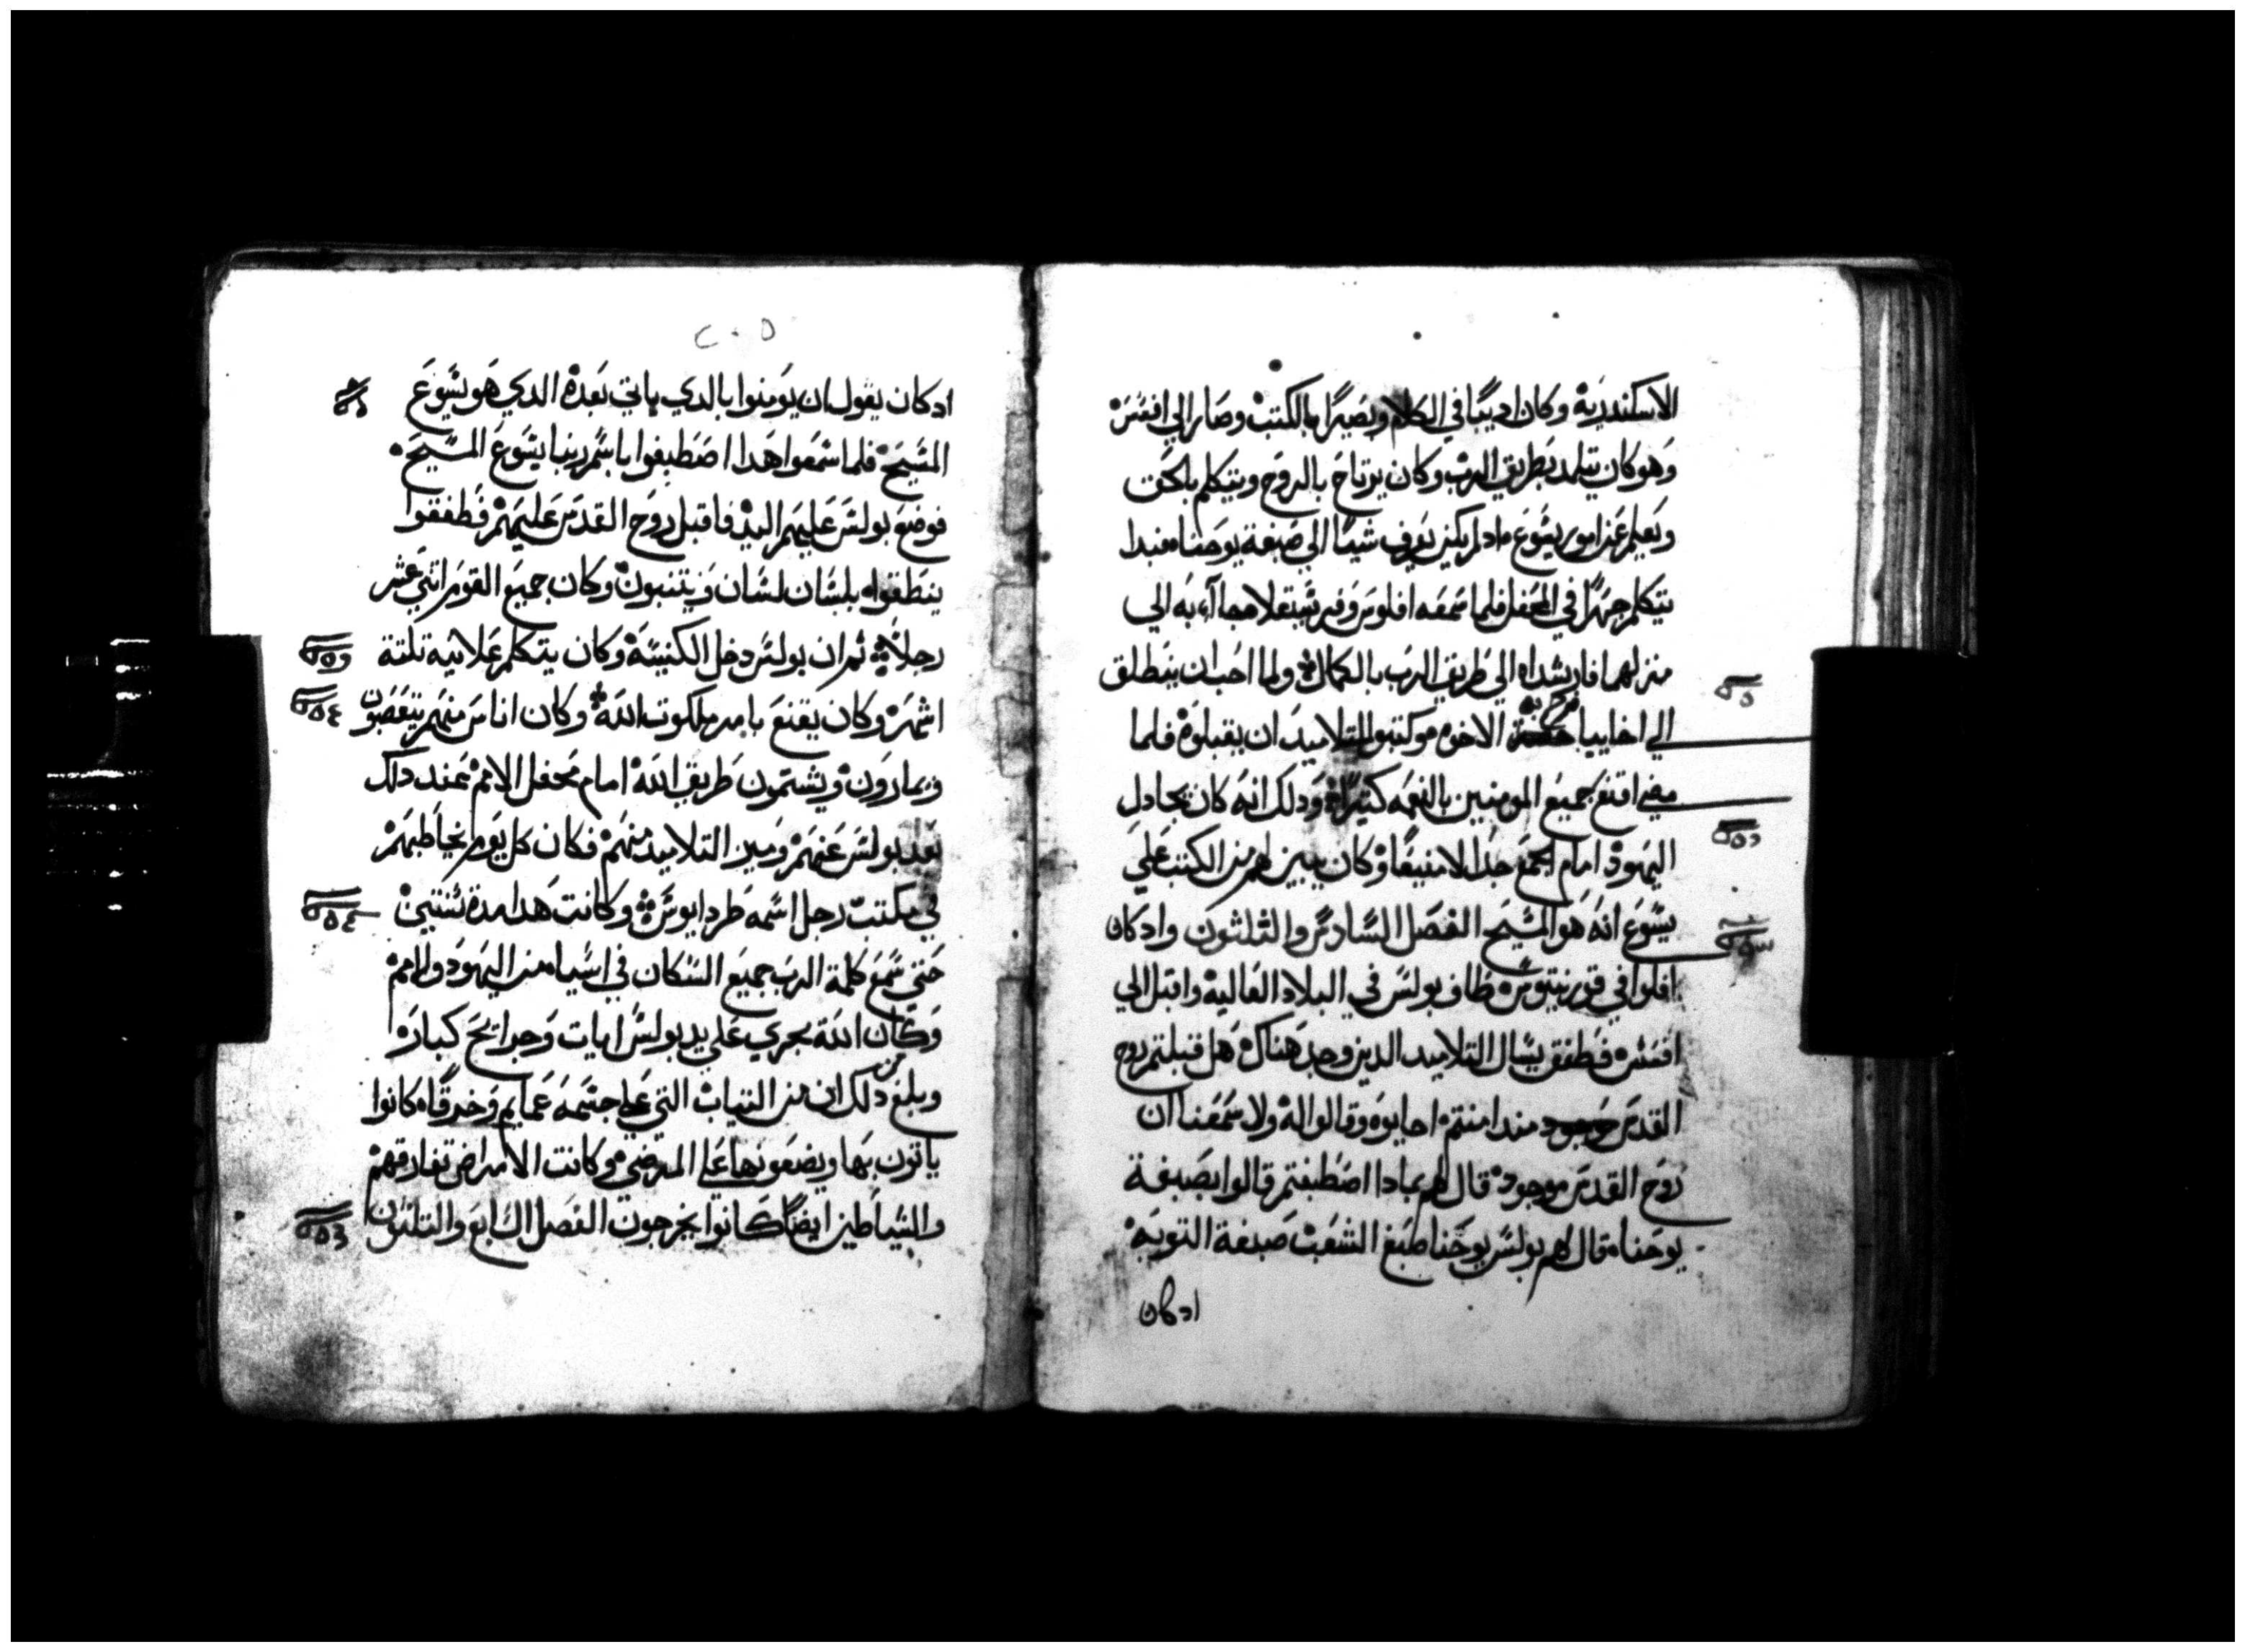 الاسكندرية وكان اديبًا في الكلام وبصيرًا بالكتب وصار الي افسس
وهو كان يتلمد بطريق الرب وكان يرتاح بالروح ويتكلم بالحق
ويعلم عن امور يسوع مادلم يكن يعرف شيئا الي صبغة يوحنا فبدا
يتكلم جهرًا في المحفل فلما سمعه اقلوس وفرسقلا جاآ به الي
منزلهما فارشداه الي طريق الرب بالكمال ولما احب ان ينطلق
الي اخاييا الاخوه وكتبوا للتلاميد ان يقبلوه فلما
مضي اقنع جميع المومنين بالنعمه كثيرًا ودلك انه كان يجادل
اليهود امام الجمع جدالا منيعًا وكان يبين لهم من الكتب علي
يسوع انه هو المسيح الفصل السادس والثلثون واد كان
افلوا في قورنتيوس طاف بولس في البلاد العالية واقبل الي
افسس فطفق يسال التلاميد الدين وجد هناك هل قبلتم روح
القدس مند امنتم اجابوه وقالوا له ولا سمعنا ان
روح القدس موجود قال لهم بمادا اصطبغتم قالوا بصبغة
يوحنا قال لهم بولس يوحنا صبغ الشعب صبغة التوبه
ادكان
٢٠٥
ادكان يقول ان يومنوا بالدي ياتي بعده الدي هو يسوع
المسيح فلما سمعوا هدا اصطبغوا باسم ربنا يسوع المسيح
فوضع بولس عليهم اليد فاقبل روح القدس عليهم فطفقوا
ينطقوا بلسان لسان ويتنبون وكان جميع القوم اثني عشر
رجلاً ثم ان بولس دخل الكنيسة وكان يتكلم علانية تلتة
اشهر وكان يقنع بامر ملكوت الله وكان اناس منهم يتعصبون
ويمارون ويشتمون طريق الله امام محفل الامم عند دلك
بعد بولس عنهم وميز التلاميد منهم فكان كل يوم يخاطبهم
في مكتب رجل اسمه طردابوس وكانت هدا مدة سنتين
حتي سمع كلمة الرب جميع السكان في اسيا من اليهود والامم
وكان الله يجري علي يد بولس ايات وجرايح كبار
وبلغ من دلك ان من التياب التي علي جسمه عمايم وخرقا كانوا
ياتون بها ويضعونها علي المرضي وكانت الامراض تفارقهم
والشياطين ايضًا كانوا يخرجون الفصل السابع والتلتون